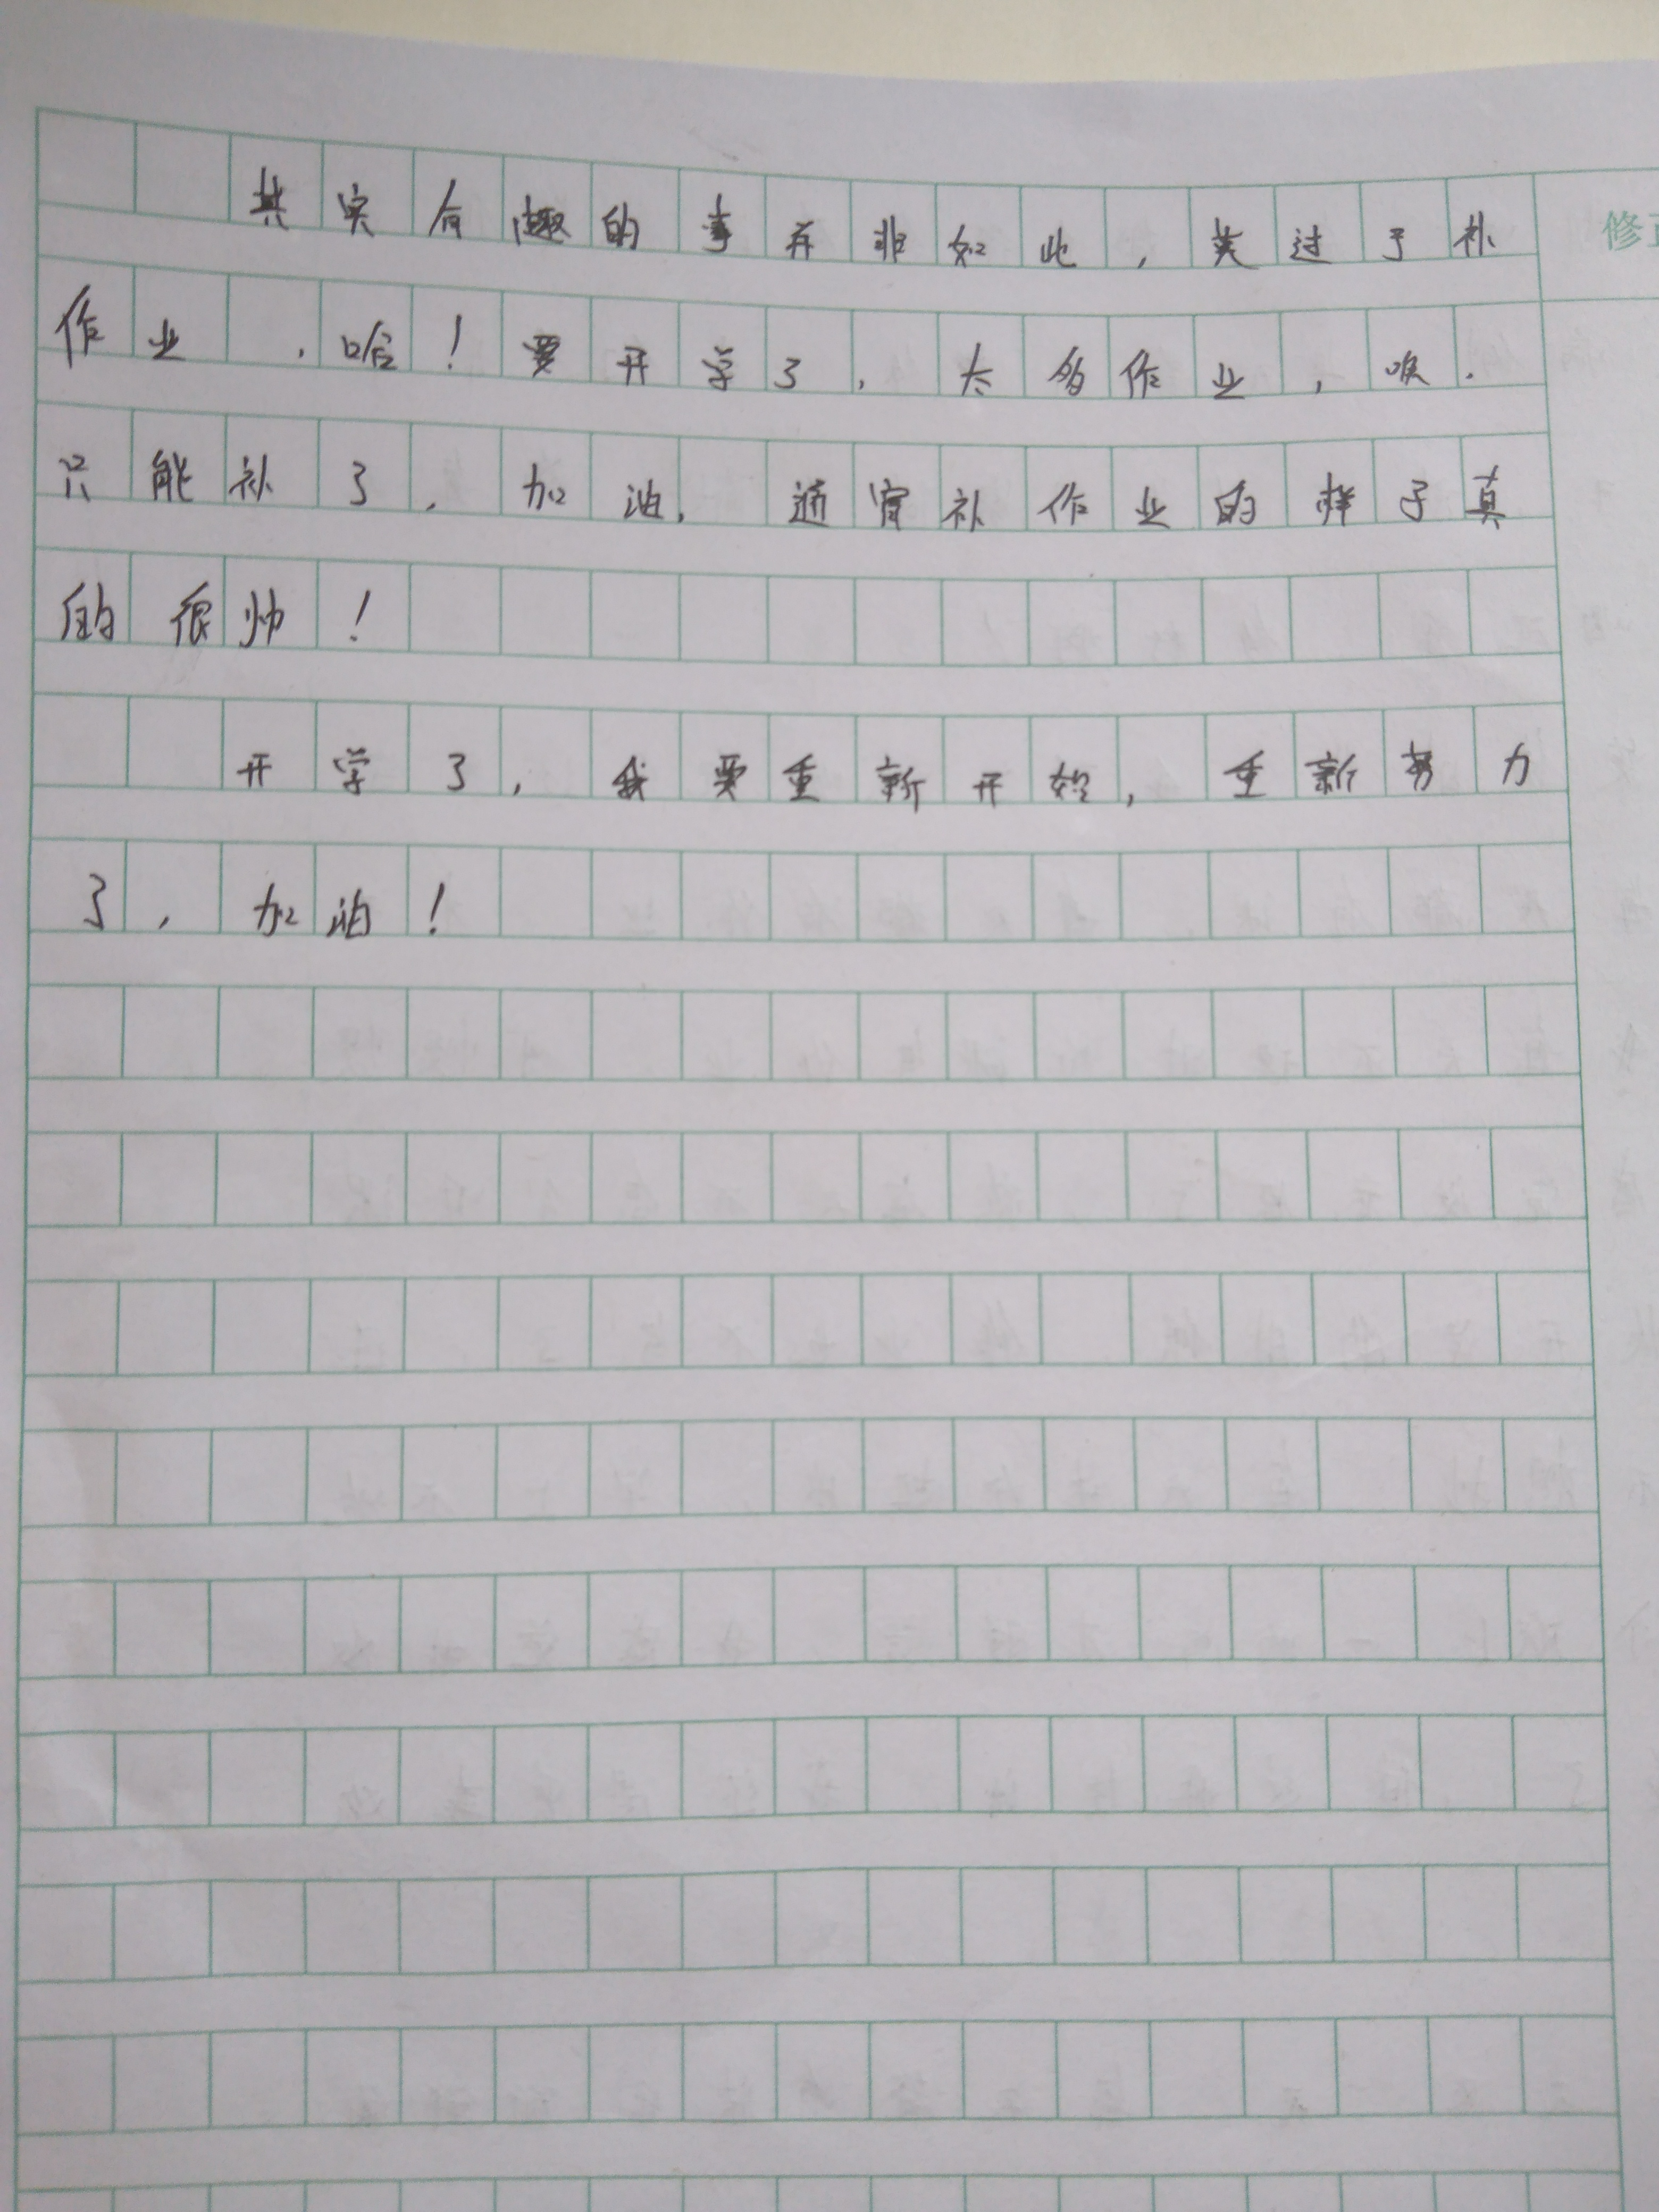 其实有趣的事并非如此，莫过于补
修
作业，哈！要开学了，太多作业，唉.
只能补了，加油，通宵补作业的样子真
的很帅！
开学了，我要重新开始，重新努力
了，加油！